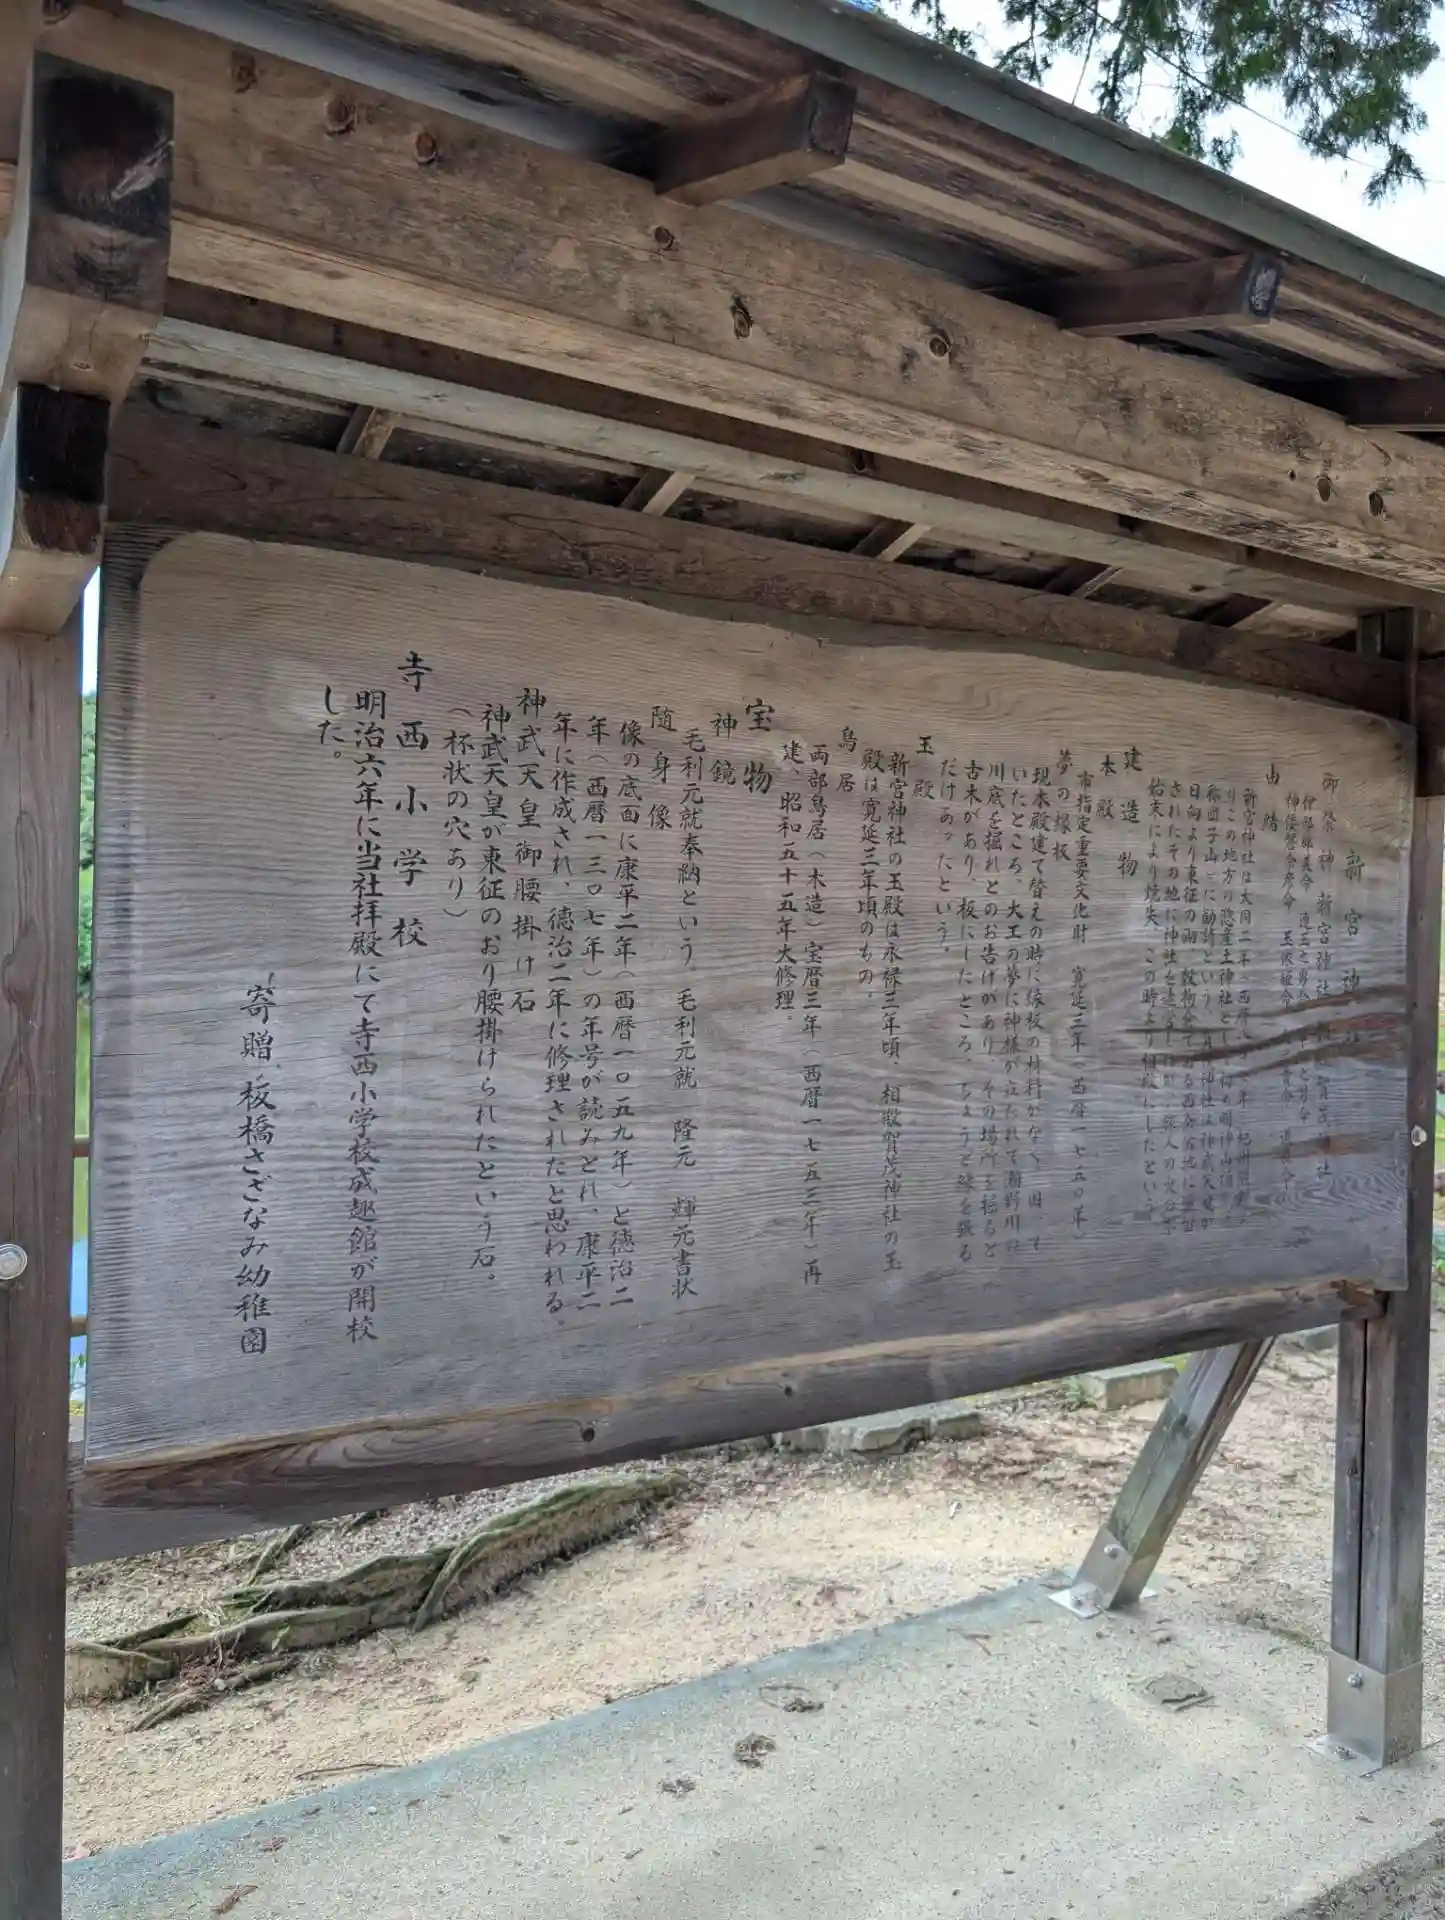 新宮神
御祭神 新宮神社
伊弉冊美命
神倭磐余彦命 玉依姫命
由緒
新宮神社は大同二年(西暦八
りこの地方の惣産土神社として初め明神山
称団子山)に勧請という。賀茂神社は神武天皇が
日向より東征の両、数物余
されたその地に神社を造営
始末により焼失、この時より相殿にしたという。
建造物
本殿
市指定重要文化財 寛延三年(西暦一七五〇年)
夢の縁板
現本殿建て替えの時に縁板の材料がなく、困って
いたところ、大工の夢に神様が立たれて瀬野川の
川底を掘れとのお告げがあり、その場所を掘ると
古木があり、板にしたところ、ちょうど縁を張る
だけあったという。
玉殿
新宮神社の玉殿は永禄三年頃、相殿賀茂神社の玉
殿は寛延三年頃のもの。
鳥居
両部鳥居(木造)宝暦三年(西暦一七五三年)再
建、昭和五十五年大修理。
宝物
神鏡
毛利元就奉納という。毛利元就 隆元 輝元書状
随身像
像の底面に康平二年(西暦一〇五九年)と徳治二
年(西暦一三〇七年)の年号が読みとれ、康平二
年に作成され、徳治二年に修理されたと思われる。
神武天皇御腰掛け石
神武天皇が東征のおり腰掛けられたという石。
(杯状の穴あり)
寺西小学校
明治六年に当社拝殿にて寺西小学校成趣館が開校
した。
寄贈 板橋さざなみ幼稚園